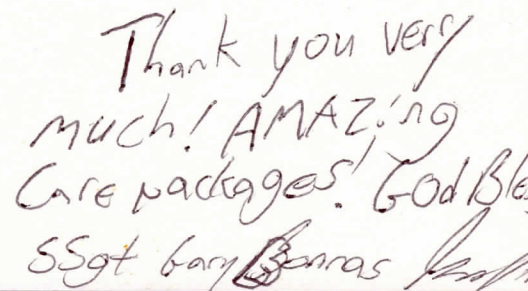 Thank you very
much! AMAZing
Care packages! GOd Ble
SSgt Gary